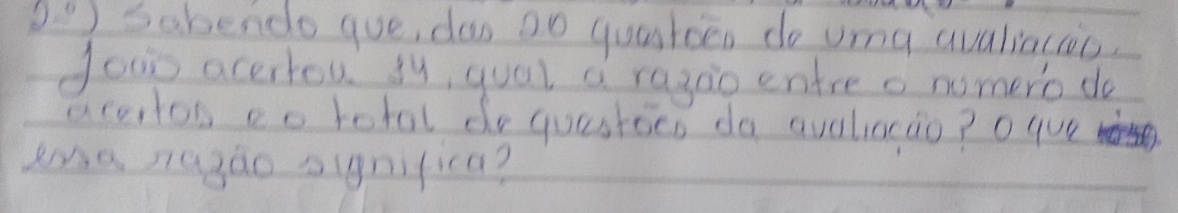 2º) Sabendo que, das 20 questões de uma avaliação
João acertou 14, qual a razão entre o numero de
acertos e o total de questões da avaliação? O que
essa razão significa?